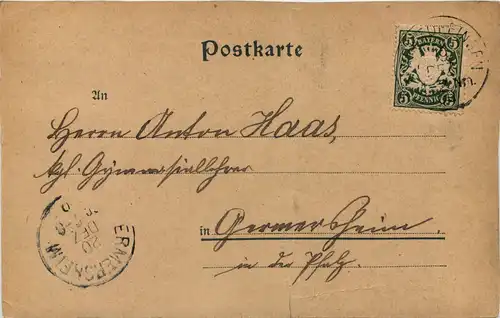 Postkarte
BAYERN
5 5
PFENNIG
5 5
An
Herrn Anton Haas,
kgl. Gymnasiallehrer
in Germersheim.
in der Pfalz.
GERMERSHEIM
20
DEZ